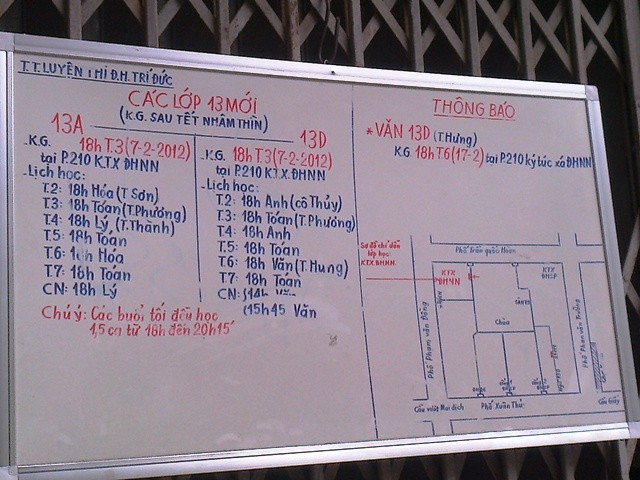 T.T.LUYỆN THI Đ.H. TRÍ ĐỨC
CÁC LỚP 13 MỚI
(K.G. SAU TẾT NHÂM THÌN)
13A
-K.G. 18h T.3 (7-2-2012)
tại P.210 KTX ĐHNN
-Lịch học:
T.2: 18h Hóa (T Sơn)
T.3: 18h Toán (T.Phương)
T.4: 18h Lý (T.Thành)
T.5: 18h Toán
T.6: 18h Hóa
T.7: 18h Toán
CN: 18h Lý
13D
-K.G. 18h T.3 (7-2-2012)
tại P.210 KTX.ĐHNN
-Lịch học:
T.2: 18h Anh (cô Thủy)
T.3: 18h Toán (T.Phương)
T.4: 18h Anh
T.5: 18h Toán
T.6: 18h Văn (T.Hưng)
T.7: 18h Toán
CN: 14h
15h45 Văn
Chú ý: Các buổi tối đều học
1,5 ca từ 18h đến 20h15'
THÔNG BÁO
* VĂN 13D (T.Hưng)
K.G. 18h T6 (17-2) tại P.210 ký túc xá ĐHNN
Sơ đồ chỉ dẫn
lớp học:
KTX ĐHNN
Phố Trần Quốc Hoàn
KTX
ĐHNN
KTX
ĐHSP
Chùa
Phố Phạm Văn Đồng
Cầu vượt Mai dịch
Phố Xuân Thủy
Cầu Giấy